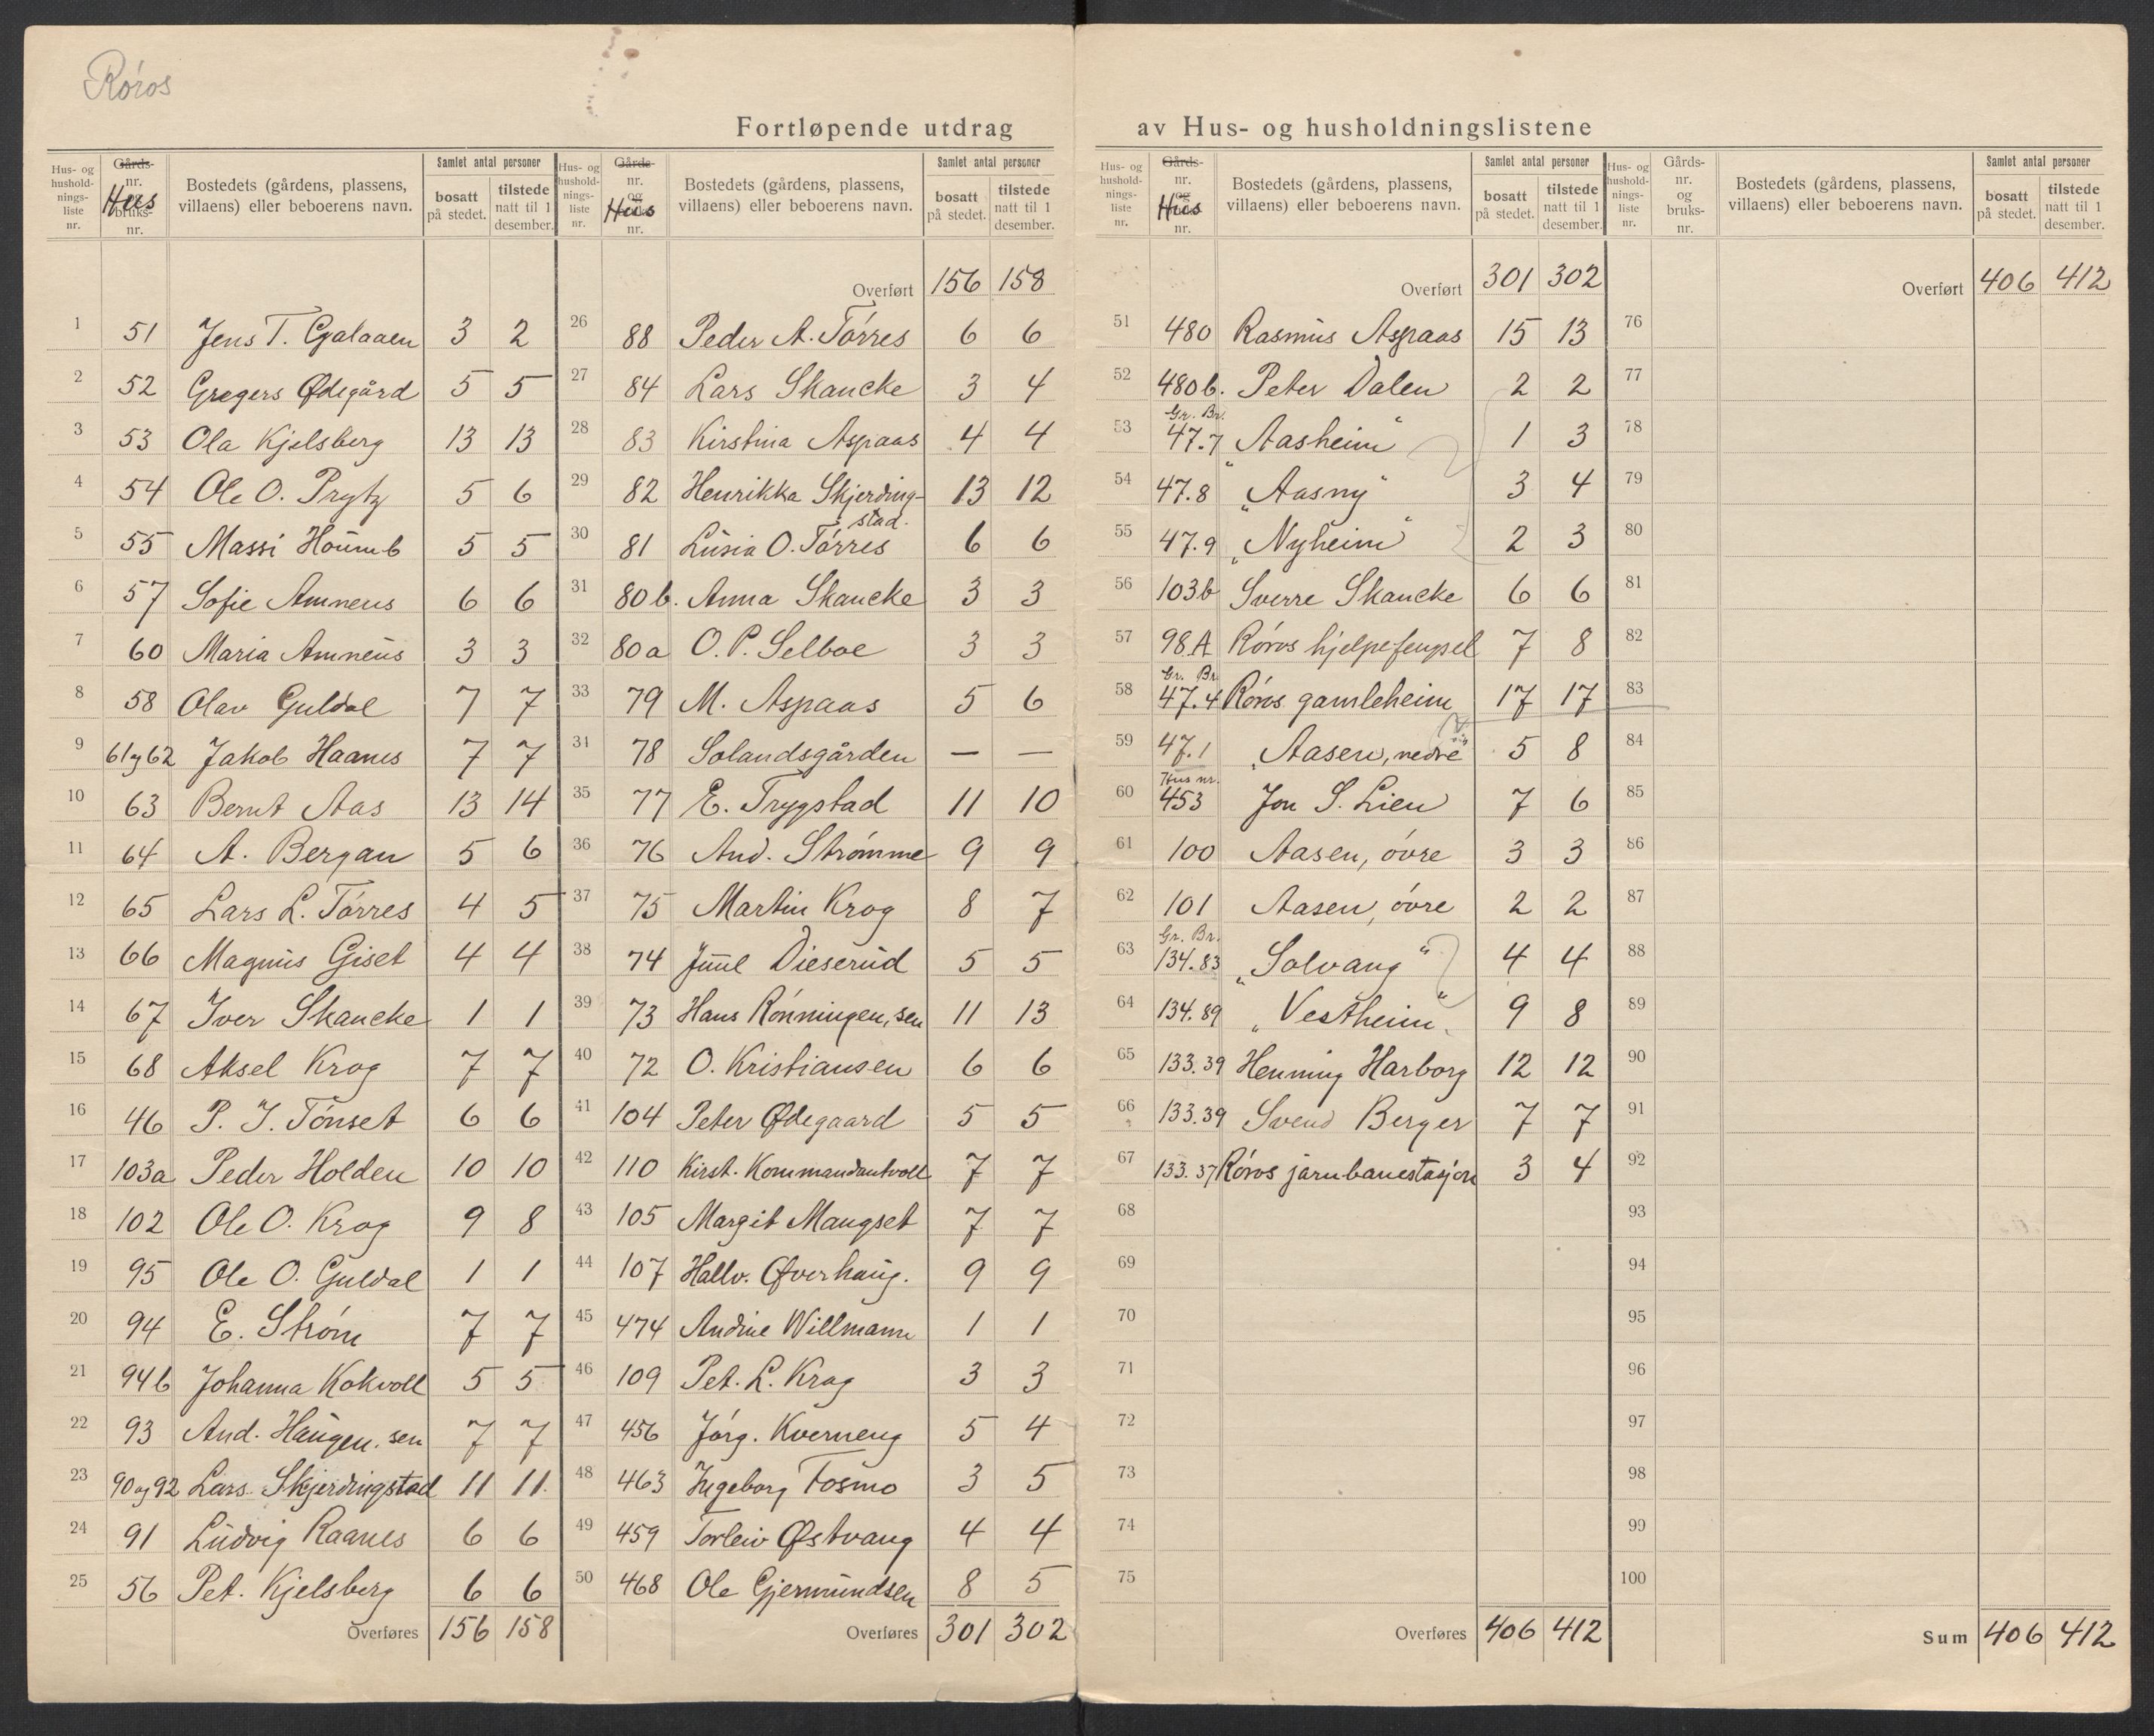 Røros
Fortløpende utdrag av Hus- og husholdningslistene
Hus- og hushold-nings-liste nr. | Gårds-nr. og bruks-nr. Hus | Bostedets (gårdens, plassens, villaens) eller beboerens navn. | Samlet antal personer | bosatt på stedet. | tilstede natt til 1 desember.
1 51 Jens T. Galaaen 3 2
2 52 Gregers Ødegård 5 5
3 53 Ola Kjelsberg 13 13
4 54 Ole O. Prytz 5 6
5 55 Massi Houmb 5 5
6 57 Sofie Amneus 6 6
7 60 Maria Amneus 3 3
8 58 Olav Guldal 7 7
9 61 og 62 Jakob Haanes 7 7
10 63 Bernt Aas 13 14
11 64 A. Bergan 5 6
12 65 Lars L. Tørres 4 5
13 66 Magnus Giset 4 4
14 67 Iver Skancke 1 1
15 68 Aksel Krog 7 7
16 46 P. J. Tønset 6 6
17 103a Peder Holden 10 10
18 102 Ole O. Krog 9 8
19 95 Ole O. Guldal 1 1
20 94 E. Strøm 7 7
21 94b Johanna Kokvoll 5 5
22 93 And. Haugen. sen 7 7
23 90 og 92 Lars Skjerdingstad 11 11.
24 91 Ludvig Raanes 6 6
25 56 Pet. Kjelsberg 6 6
Overføres 156 158
Hus- og hushold-nings-liste nr. | Gårds-nr. og bruks-nr. Hus | Bostedets (gårdens, plassens, villaens) eller beboerens navn. | Samlet antal personer | bosatt på stedet. | tilstede natt til 1 desember.
Overført 156 158
26 88 Peder A. Tørres 6 6
27 84 Lars Skancke 3 4
28 83 Kirstina Aspaas 4 4
29 82 Henrikka Skjerding-stad. 13 12
30 81 Lusia O. Tørres 6 6
31 80b. Anna Skancke 3 3
32 80a O. P. Selboe 3 3
33 79 M. Aspaas 5 6
34 78 Solandsgården — —
35 77 E. Trygstad 11 10
36 76 And. Strømme 9 9
37 75 Martin Krog 8 7
38 74 Juul Dieserud 5 5
39 73 Hans Rønningen, sen 11 13
40 72 O. Kristiansen 6 6
41 104 Peter Ødegaard 5 5
42 110 Kirst. Kommandantvoll 7 7
43 105 Margit Mangset 7 7
44 107 Hallv. Øverhaug. 9 9
45 474 Andine Willmann 1 1
46 109 Pet. L. Krog 3 3
47 456 Jørg. Kverneng 5 4
48 463 Ingeborg Tosmo 3 5
49 459 Torleiv Østvang 4 4
50 468 Ole Gjermundsen 8 5
Overføres 301 302
Hus- og hushold-nings-liste nr. | Gårds-nr. og bruks-nr. Hus | Bostedets (gårdens, plassens, villaens) eller beboerens navn. | Samlet antal personer | bosatt på stedet. | tilstede natt til 1 desember.
Overført 301 302
51 480 Rasmus Aspaas 15 13
52 480b. Peter Dalen 2 2
53 Gr. Br. 47.7 „Aasheim" 1 3
54 47.8 „Aasny" 3 4
55 47.9 „Nyheim" 2 3
56 103b Sverre Skancke 6 6
57 98.A Røros hjelpefengsel 7 8
58 Gr. Br. 47.4 Røros gamleheim 17 17
59 47.1 „Aasen, nedre" 5 8
60 Hus nr. 453 Jon S. Lien 7 6
61 100 Aasen, øvre 3 3
62 101 Aasen, øvre 2 2
63 Gr. Br. 134.83 „Solvang" 4 4
64 134.89 „Vestheim" 9 8
65 133.39 Henning Harborg 12 12
66 133.39 Svend Berger 7 7
67 133.37 Røros jarnbanestasjon 3 4
68
69
70
71
72
73
74
75
Overføres 406 412
Hus- og hushold-nings-liste nr. | Gårds-nr. og bruks-nr. | Bostedets (gårdens, plassens, villaens) eller beboerens navn. | Samlet antal personer | bosatt på stedet. | tilstede natt til 1 desember.
Overført 406 412
76
77
78
79
80
81
82
83
84
85
86
87
88
89
90
91
92
93
94
95
96
97
98
99
100
Sum 406 412